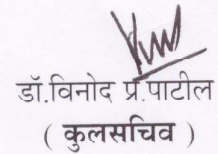 डॉ.विनोद प्र.पाटील
( कुलसचिव )